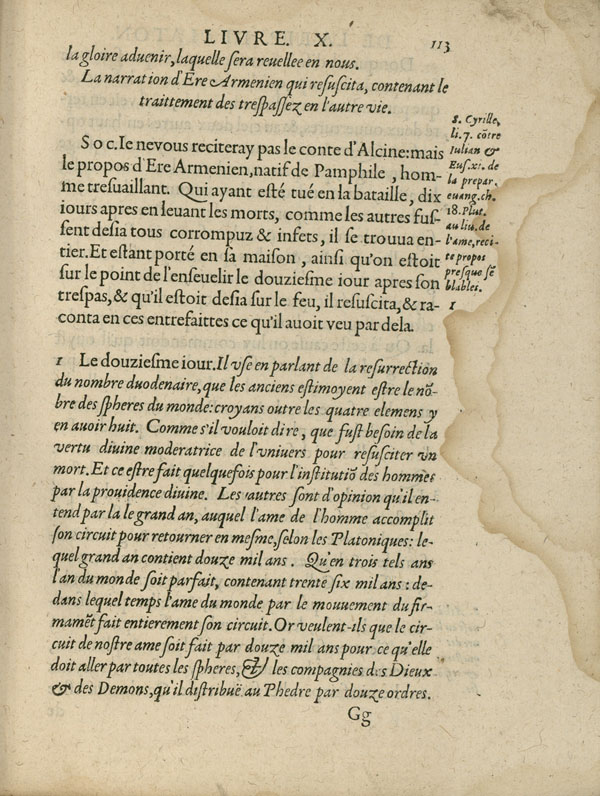 LIVRE. X. 113
la gloire aduenir, laquelle sera reuellee en nous.
La narration d'Ere Armenien qui resuscita, contenant le
traittement des trespassez en l'autre vie.
Soc. Ie ne vous reciteray pas le conte d'Alcine: mais
le propos d'Ere Armenien, natif de Pamphile, hom-
me tresuaillant. Qui ayant esté tué en la bataille, dix
iours apres en leuant les morts, comme les autres fus-
sent desia tous corrompuz & infets, il se trouua en-
tier. Et estant porté en sa maison, ainsi qu'on estoit
sur le point de l'enseuelir le douziesme iour apres son
trespas, & qu'il estoit desia sur le feu, il resuscita, & ra-
conta en ces entrefaittes ce qu'il auoit veu par dela.
S. Cyrille,
li. 7. cōtre
Iulian &
Eus. xi. de
la prepar.
euang. ch.
18. Plut.
au liu. de
l'ame, reci-
te propos
presque sē
blables.
1
1 Le douziesme iour. Il vse en parlant de la resurrection
du nombre duodenaire, que les anciens estimoyent estre le nō-
bre des spheres du monde: croyans outre les quatre elemens y
en auoir huit. Comme s'il vouloit dire, que fust besoin de la
vertu diuine moderatrice de l'vniuers pour resusciter vn
mort. Et ce estre fait quelquefois pour l'institutiō des hommes
par la prouidence diuine. Les autres sont d'opinion qu'il en-
tend par la le grand an, auquel l'ame de l'homme accomplit
son circuit pour retourner en mesme, selon les Platoniques: le-
quel grand an contient douze mil ans. Qu'en trois tels ans
l'an du monde soit parfait, contenant trente six mil ans: de-
dans lequel temps l'ame du monde par le mouuement du fir-
mamēt fait entierement son circuit. Or veulent-ils que le cir-
cuit de nostre ame soit fait par douze mil ans pour ce qu'elle
doit aller par toutes les spheres, & les compagnies des Dieux
& des Demons, qu'il distribuë au Phedre par douze ordres.
Gg